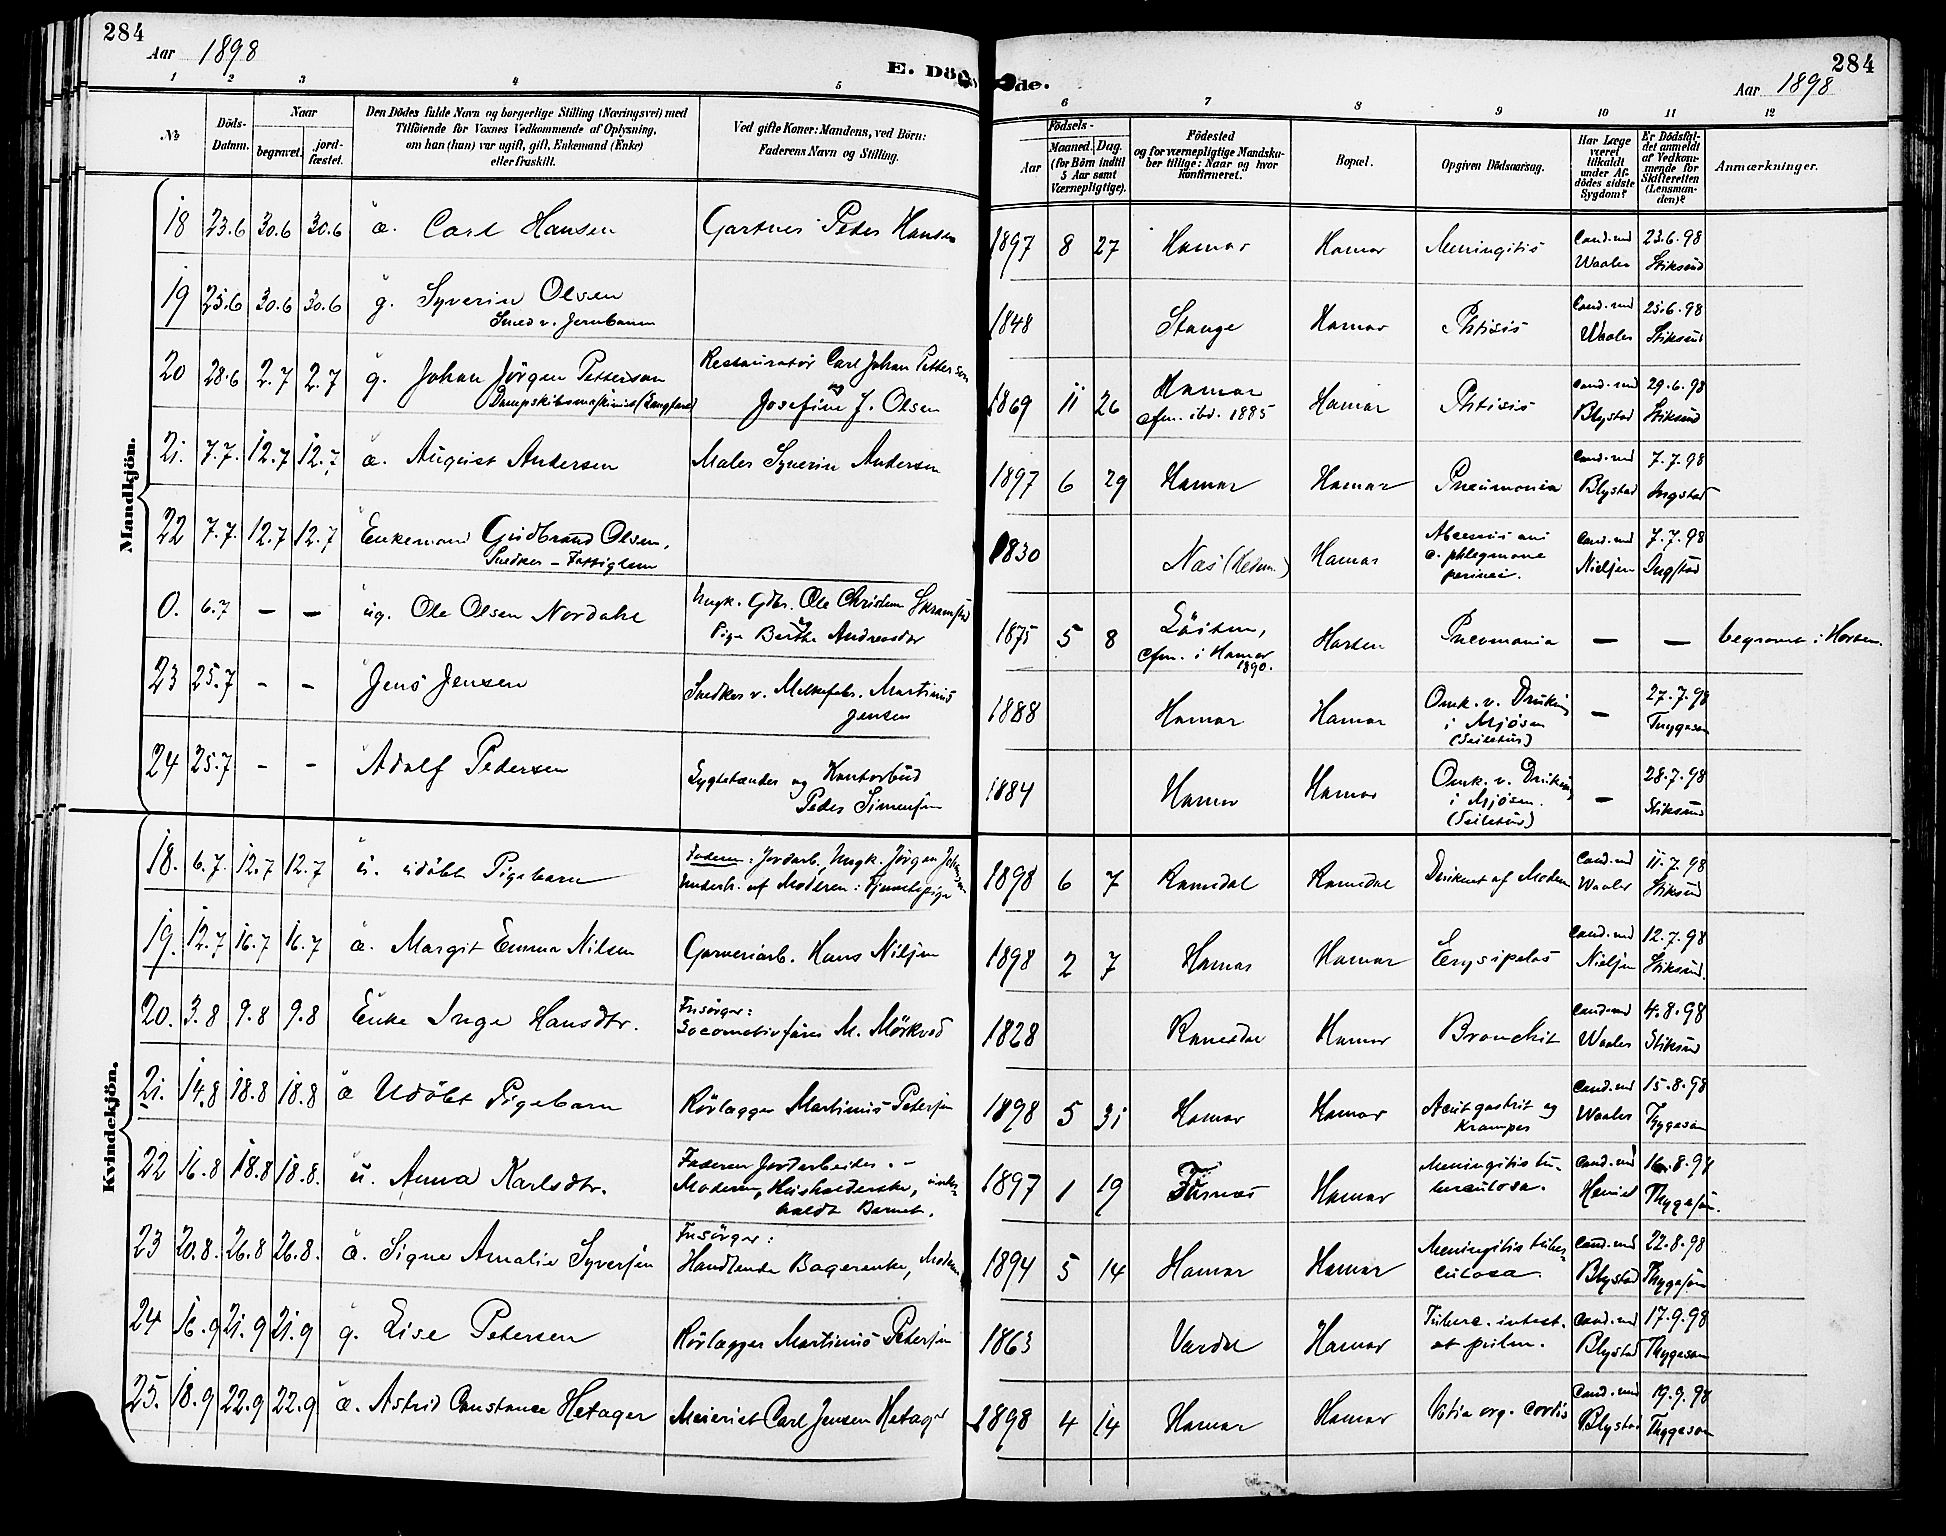 284
Aar 1898
E. Dö
de.
Aar 1898
284
1 2 3 4 5 6 7 8 9 10 11 12
№
Döds-
Datum.
Naar
begravet.
jord-
fæstet.
Den Dödes fulde Navn og borgerlige Stilling (Næringsvei) med
Tilföiende for Voxnes Vedkommende af Oplysning,
om han (hun) var ugift, gift, Enkemand (Enke)
eller fraskilt.
Ved gifte Koner: Mandens, ved Börn:
Faderens Navn og Stilling.
Födsels-
Aar
Maaned. Dag.
(for Börn indtil
5 Aar samt
Værnepligtige).
Födested
og for værnepligtige Mandska-
ber tillige: Naar og hvor
konfirmeret.
Bopæl.
Opgiven Dödsaarsag.
Har Læge
været
tilkaldt
under Af-
dödes sidste
Sygdom?
Er Dödsfal-
det anmeldt
af Vedkom-
mende for
Skifteretten
(Lensman-
den)?
Anmærkninger.
Mandkjön.
18 23.6 30.6 30.6 æ. Carl Hansen Gartner Peder Hansen 1897 8 27 Hamar Hamar Meningitis Cand. med Waaler 23.6.98 Stiksrud
19 25.6 30.6 30.6 g. Syverin Olsen
Smed v. Jernbanen 1848 Stange Hamar Phtisis Cand. med Waaler 25.6.98 Stiksrud
20 28.6 2.7 2.7 g. Johan Jörgen Petterson
Restauratör Carl Johan Petterson
og
Josefine J. Olsen 1869 11 26 Hamar
cfm. ibd. 1885 Hamar Phtisis Cand. med Blystad 29.6.98 Stiksrud
21. 7.7. 12.7 12.7 æ. August Andersen Maler Syverin Andersen 1897 6 29 Hamar Hamar Pneumonia Cand. med Blystad 7.7.98 Ingstad
22 7.7. 12.7 12.7 Enkemand Gudbrand Olsen,
Snedker - Fattiglem 1830 Næs (Hedm.) Hamar Abcessus ani
c. phlegmone
perinei. Cand. med Nielsen 7.7.98 Ingstad
0. 6.7 - - ug. Ole Olsen Nordahl Ungk. Gdbr. Ole Christian Skramstad
og
Pige Berthe Andreasdtr 1875 5 8 Löiten,
cfm. i Hamar
1890. Horten Pneomonia - - begravet i Horten.
23 25.7 - - Jens Jensen Snedker v. Melkefabr. Martinus
Jensen 1888 Hamar Hamar Omk. v. Drukning
i Mjösen
(Seiletur) - 27.7.98 Thygeson
24 25.7 - - Adolf Pedersen Lygtetænder og Kontorbud
Peder Simensen 1884 Hamar Hamar Omk. v. Drukning
i Mjösen.
(Seiletur) - 28.7.98 Stiksrud
Kvindekjön.
18. 6.7 12.7 12.7 u. udöbt Pigebarn Faderen: Jordarb. Ungk. Jörgen Johansen
Underh. af Moderen: Tjenestepige 1898 6 7 Vang Cand. med Waaler 11.7.98 Stiksrud
19. 12.7 16.7 16.7 æ. Margit Emma Nilsen Garveriarb. Hans Nilsen 1898 2 7 Hamar Hamar Erysipelas Cand. med Nielsen 12.7.98 Stiksrud.
20. 3.8 9.8 9.8 Enke Inge Hansdtr. Forsörger:
Locomotivförer M. Mörkved 1828 Hamar Bronchit Cand. med Waaler 4.8.98 Stiksrud
21. 14.8 18.8 18.8 æ Udöbt Pigebarn Rörlægger Martinus Petersen 1898 5 31 Hamar Hamar Acut gastrit og
Kramper Cand. med Waaler 15.8.98 Thygeson
22 16.8 18.8 18.8. u. Anna Karlsdtr. Faderen Jordarbeider. -
Moderen, Husholderske, under-
holdt Barnet. 1897 1 19 Furnæs Hamar Meningitis tu-
berculosa. Cand. med 16.8.98 Thygeson.
23 20.8. 26.8 26.8. æ. Signe Amalie Syversen Forsörger:
Handlende Bagerenke, Moderen 1894 5 14 Hamar Hamar Meningitis tuber-
culosa Cand. med Blystad 22.8.98 Thygeson
24 16.9 21.9 21.9 g. Lise Petersen Rörlægger Martinus Petersen 1863 Vardal Hamar Tuberc. intest.
et pulm. Cand. med Blystad 17.9.98 Thygeson
25. 18.9 22.9 22.9 æ. Astrid Constance Hetager Meieriet Carl Jensen Hetager 1898 4 14 Hamar Hamar Vitia org. cordis Cand. med Blystad 19.9.98 Thygeson